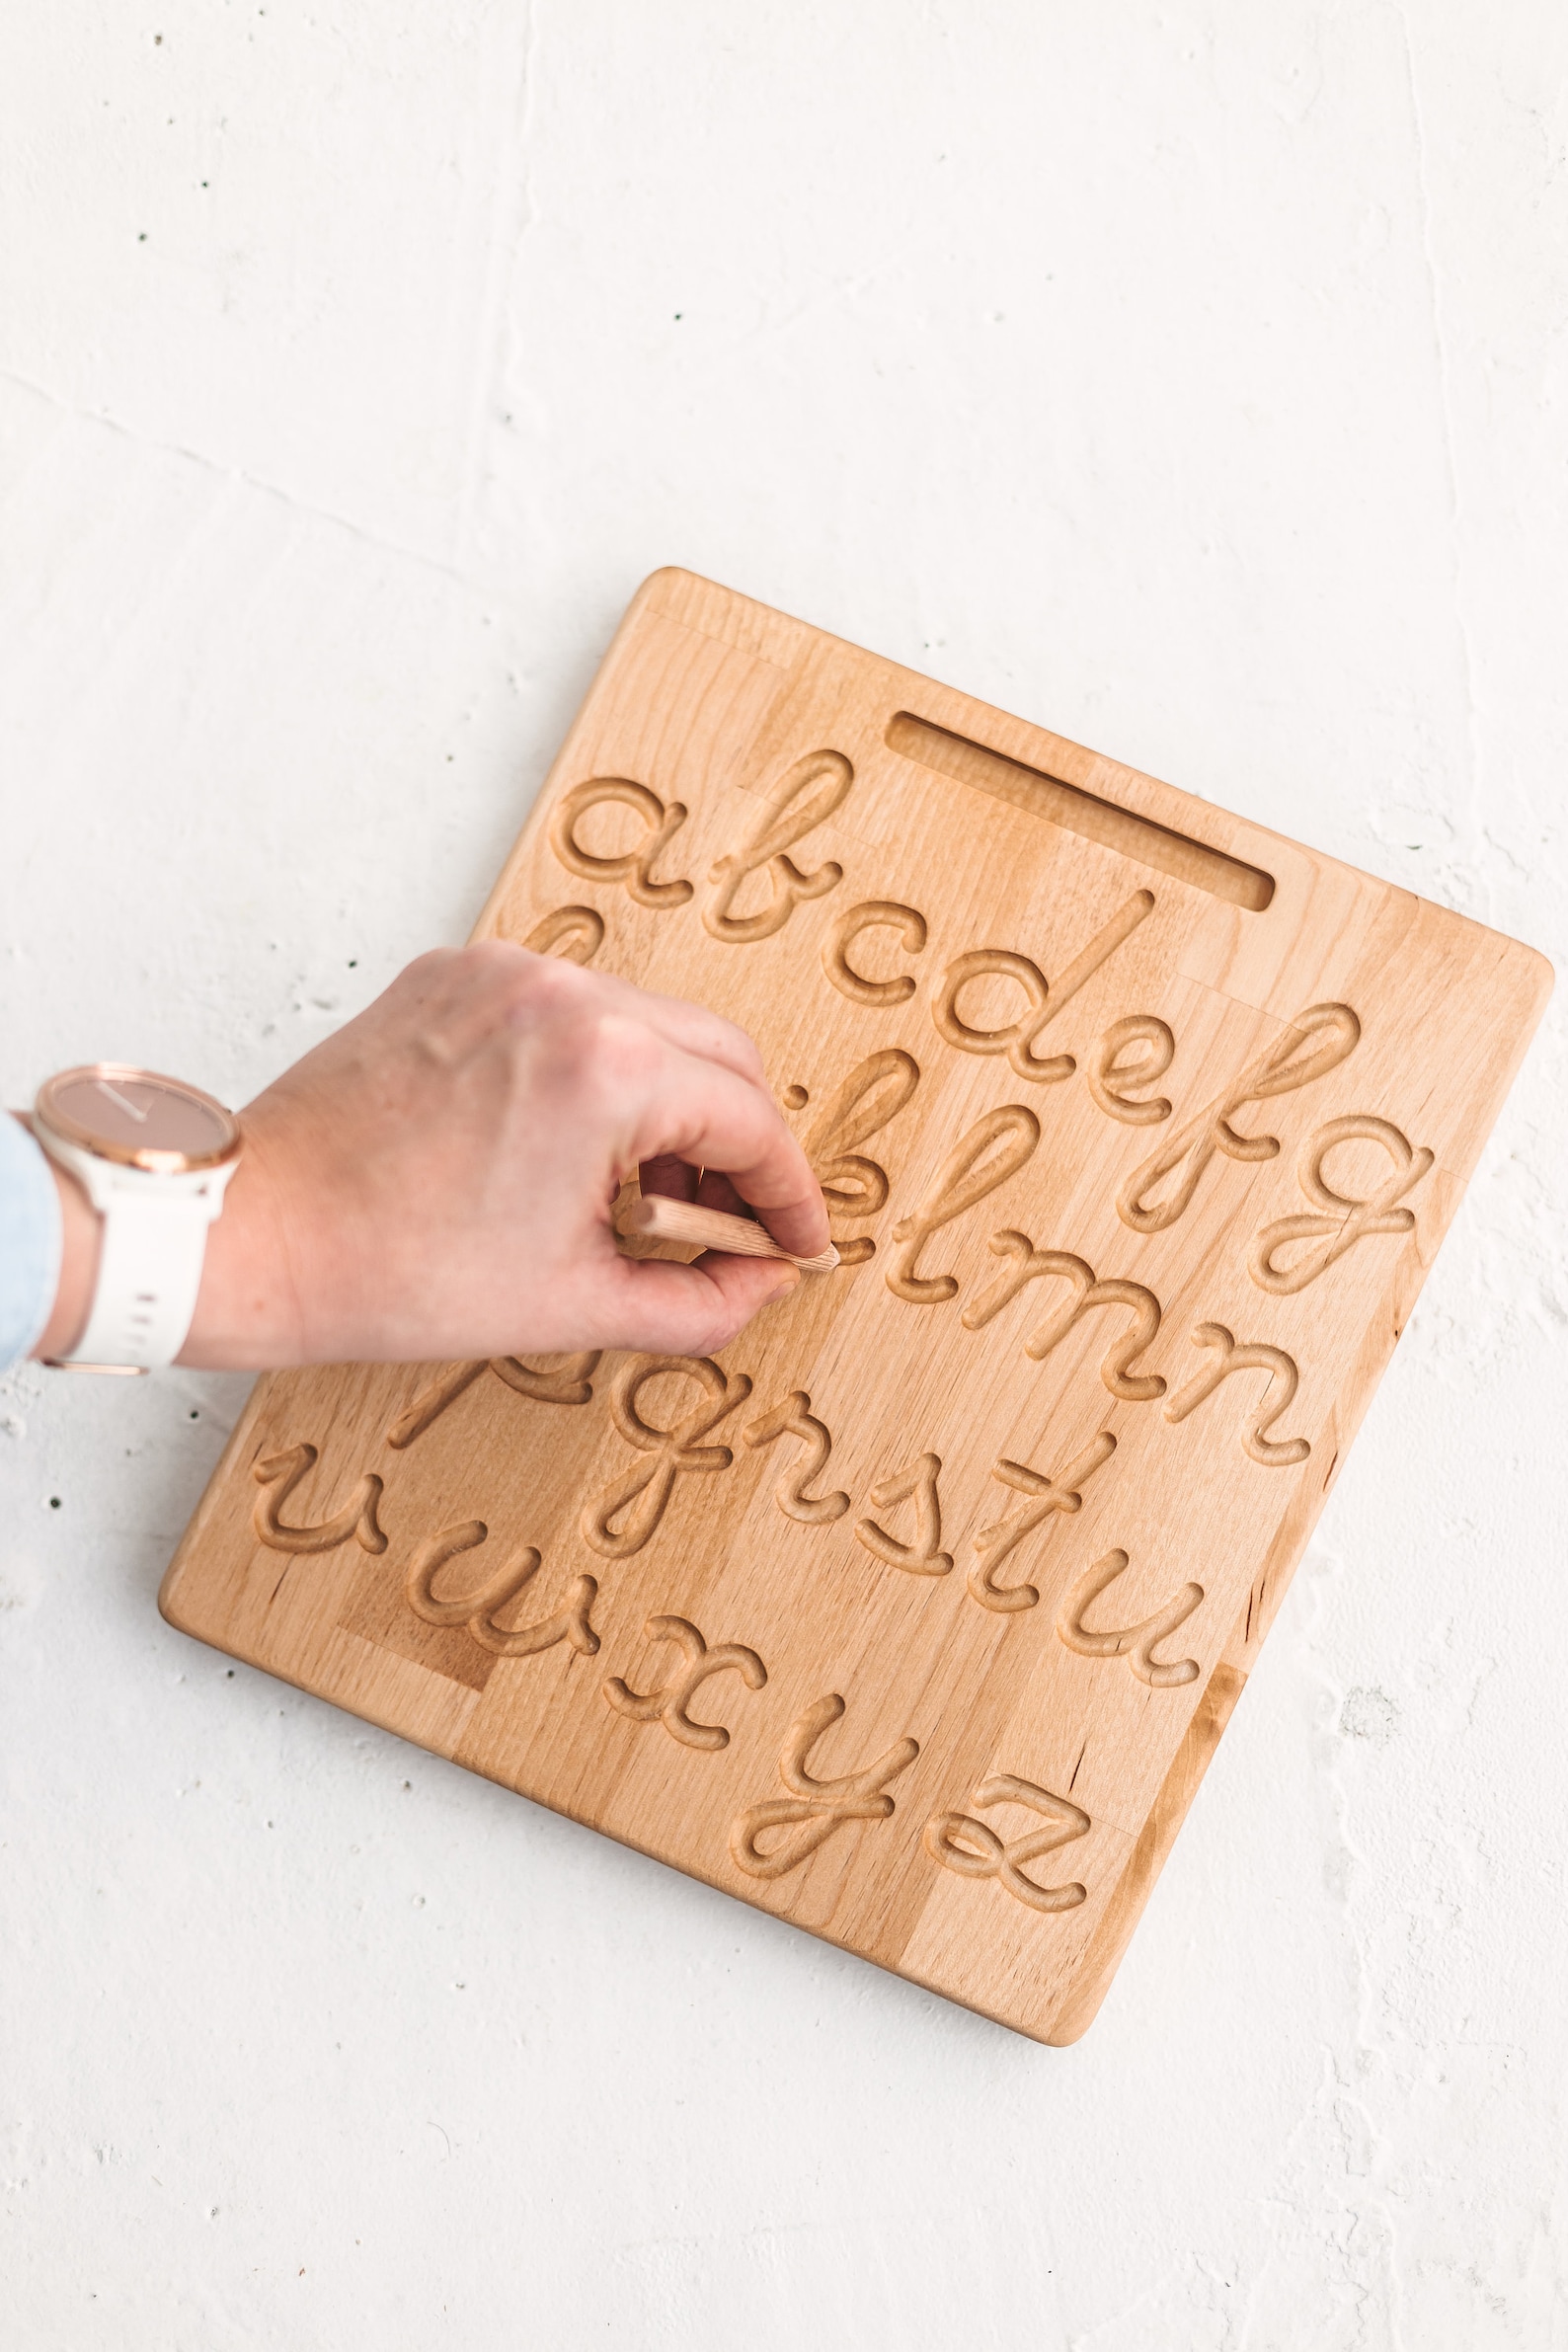 a b c d e f g
h j k l m n
p q r s t u
v w x y z